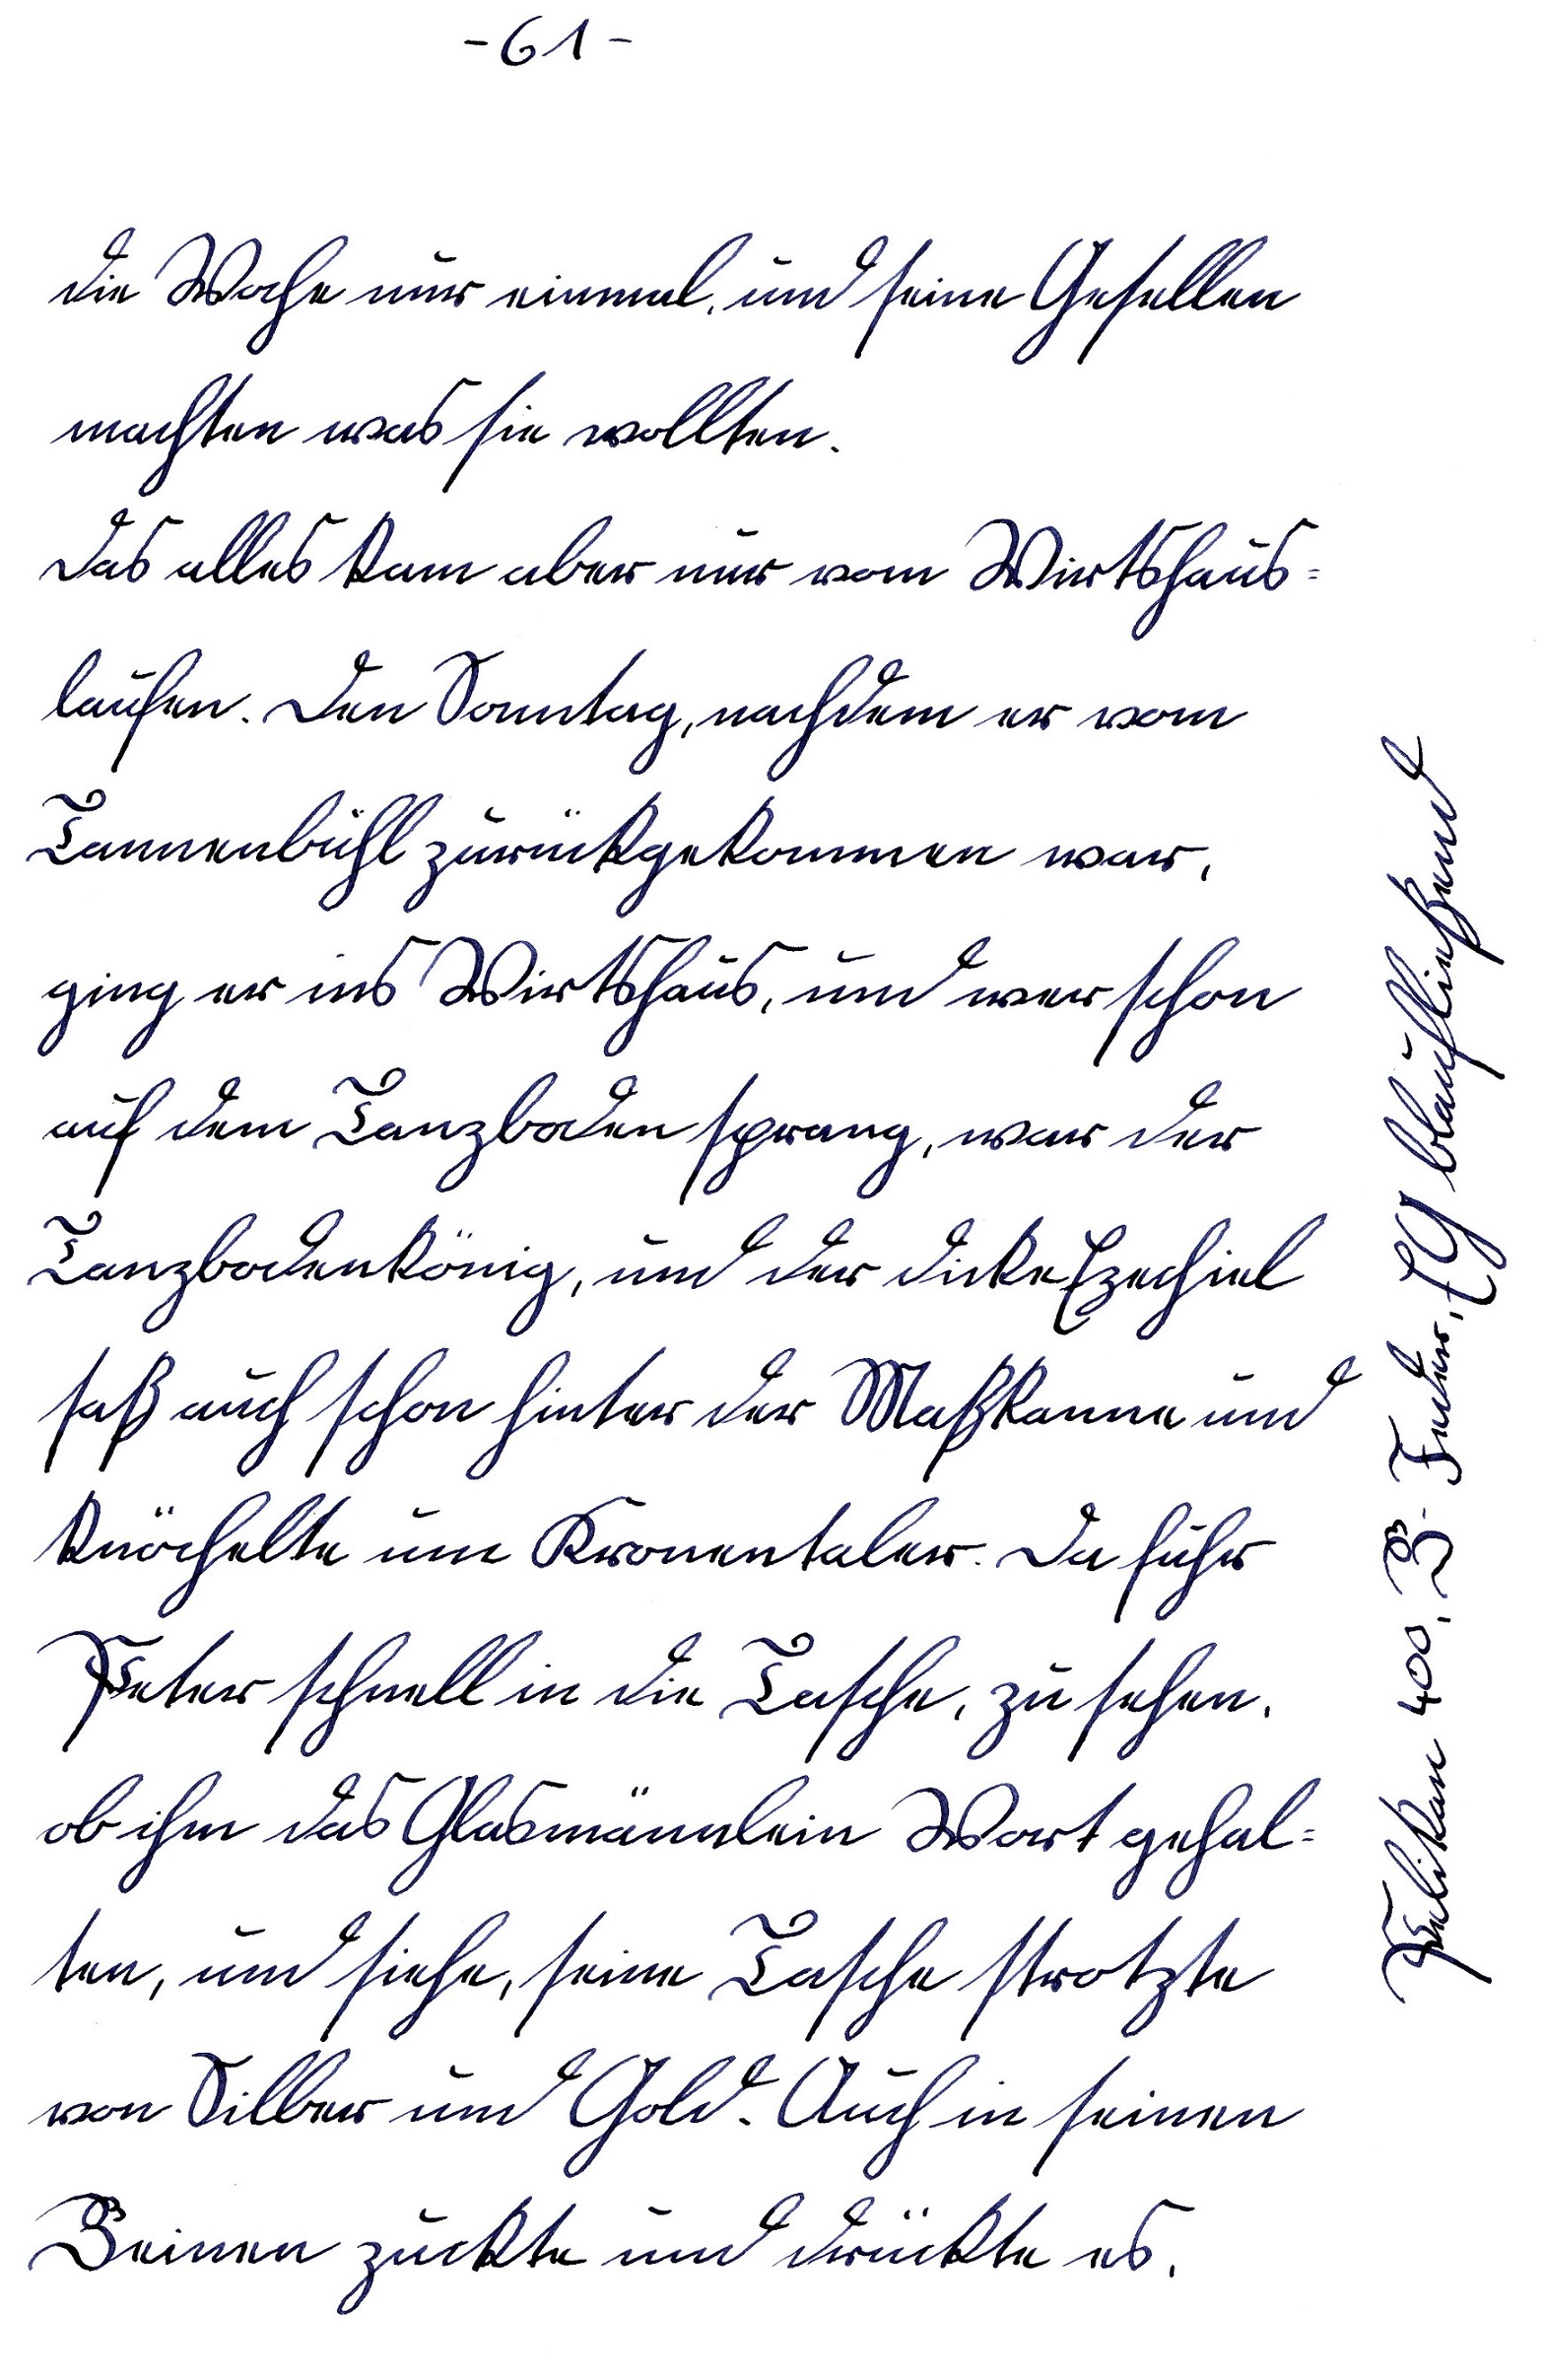 -61-
die Woche nur einmal, und seine Gesellen
machten was sie wollten.
Das alles kam aber nur vom Wirtshaus=
laufen. Den Sonntag, nachdem er vom
Tannenbühl zurückgekommen war,
ging er ins Wirtshaus, und wer schon
auf dem Tanzboden sprang, war der
Tanzbodenkönig, und der dicke Ezechiel
saß auch schon hinter der Maßkanne und
knöchelte um Kronentaler. Da fuhr
Peter schnell in die Tasche, zu sehen,
ob ihm das Glasmännlein Wort gehal=
ten, und siehe, seine Tasche strotzte
von Silber und Gold. Auch in seinen
Beinen zuckte und drückte es,
Pelikan 400, B-Feder, EG blaufließend